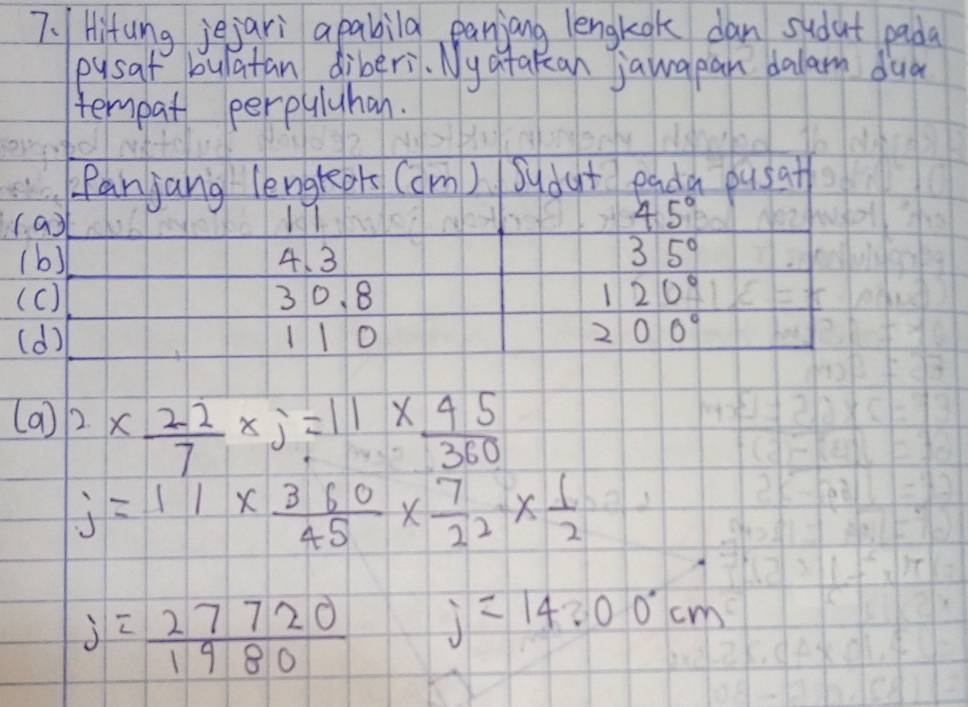 7. Hitung jejari apabila panjang lengkok dan sudut pada
pusat bulatan diberi. Nyatakan jawapan dalam dua
tempat perpuluhan.
Panjang lengkok (cm) Sudut pada pusat
(a) 11 45°
(b) 4.3 35°
(c) 30.8 120°
(d) 110 200°
(a) 2 × 22/7 × j = 11 × 45/360
j = 11 × 360/45 × 7/22 × 1/2
j = 27720/1980 j = 14.00 cm